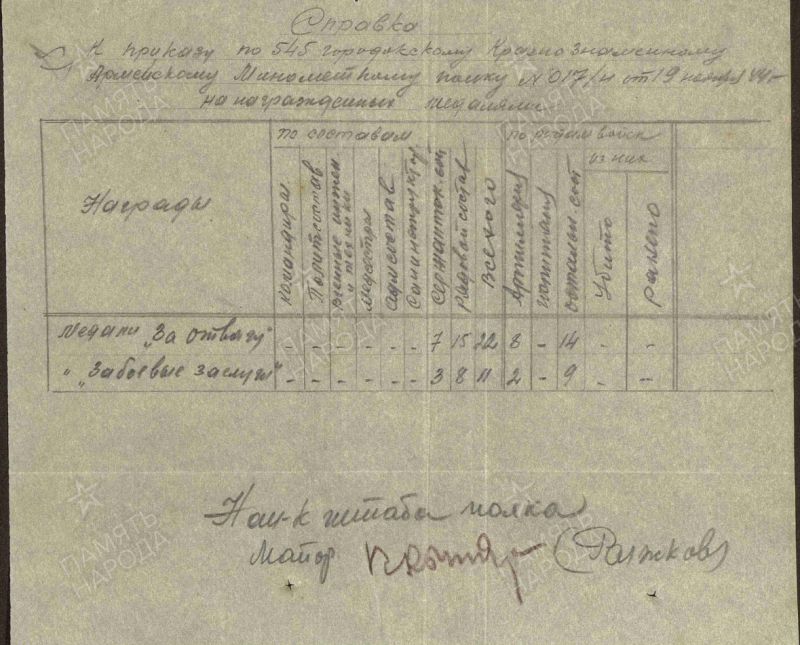 Справка
К приказу по 545 городокскому Краснознаменному
Армейскому Минометному полку №017/н от 19 ноября 44г
на награжденных медалями.
по составам
по родам войск
из них
Награды
командиры
Политсостав
Военные инжен. и техники
медсестры
адм состав
Санинструктор
Сержантск. сост
Рядовой состав
Всего
Артиллерия
остальн. сост
Убито
Ранено
медали „За отвагу" - - - - - - 7 15 22 8 - 14 - -
" „За боевые заслуги" - - - - - - 3 8 11 2 - 9 - -
Нач-к штаба полка
Майор (Рыжков)
ПАМЯТЬ НАРОДА